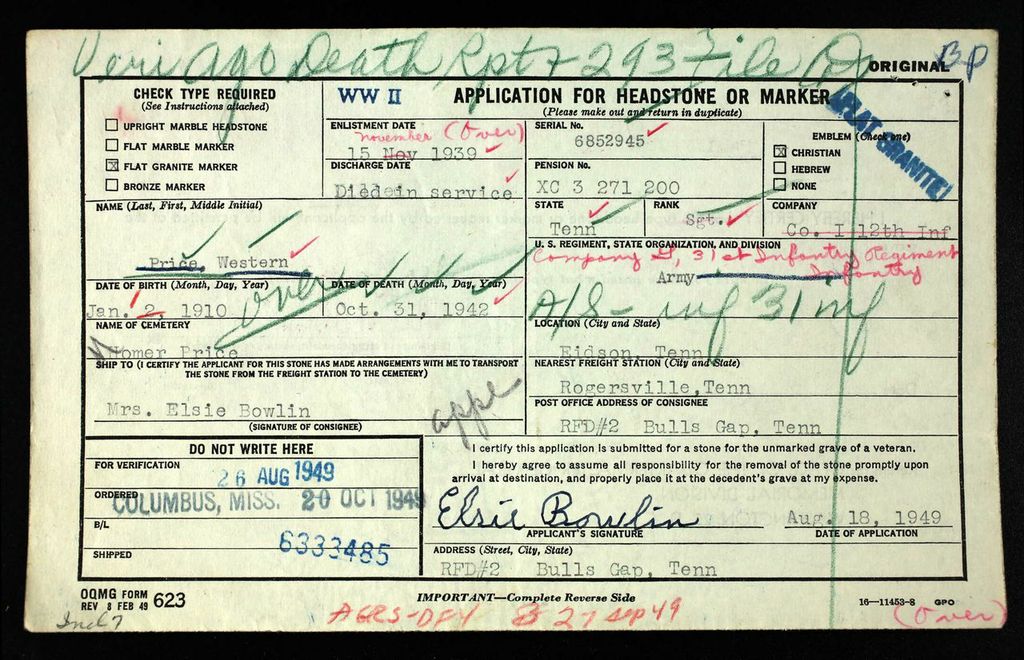 Veri Ago Death Rpt + 293 File
ORIGINAL BP
CHECK TYPE REQUIRED
(See Instructions attached)
UPRIGHT MARBLE HEADSTONE
FLAT MARBLE MARKER
☒ FLAT GRANITE MARKER
BRONZE MARKER
WW II
APPLICATION FOR HEADSTONE OR MARKER
(Please make out and return in duplicate)
FLAT GRANITE
ENLISTMENT DATE
November (Over)
15 Nov 1939
DISCHARGE DATE
Diedein service
SERIAL No.
6852945
PENSION No.
XC 3 271 200
EMBLEM (Check one)
☒ CHRISTIAN
HEBREW
NONE
STATE
Tenn
RANK
Sgt.
COMPANY
Co. I 12th Inf
NAME (Last, First, Middle Initial)
Price, Western
U. S. REGIMENT, STATE ORGANIZATION, AND DIVISION
Company G, 31st Infantry Regiment
Army Infantry
DATE OF BIRTH (Month, Day, Year)
Jan. 2, 1910
over
DATE OF DEATH (Month, Day, Year)
Oct. 31, 1942
A/S - inf 31 inf
NAME OF CEMETERY
Homer Price
LOCATION (City and State)
Eidson, Tenn
SHIP TO (I CERTIFY THE APPLICANT FOR THIS STONE HAS MADE ARRANGEMENTS WITH ME TO TRANSPORT
THE STONE FROM THE FREIGHT STATION TO THE CEMETERY)
Mrs. Elsie Bowlin
(SIGNATURE OF CONSIGNEE)
appl
NEAREST FREIGHT STATION (City and State)
Rogersville,Tenn
POST OFFICE ADDRESS OF CONSIGNEE
RFD#2 Bulls Gap, Tenn
DO NOT WRITE HERE
FOR VERIFICATION
26 AUG 1949
ORDERED
COLUMBUS, MISS. 20 OCT 1949
B/L
6333485
SHIPPED
I certify this application is submitted for a stone for the unmarked grave of a veteran.
I hereby agree to assume all responsibility for the removal of the stone promptly upon
arrival at destination, and properly place it at the decedent's grave at my expense.
Elsie Bowlin Aug. 18, 1949
APPLICANT'S SIGNATURE DATE OF APPLICATION
ADDRESS (Street, City, State)
RFD#2 Bulls Gap, Tenn
OQMG FORM
REV 8 FEB 49 623
IMPORTANT—Complete Reverse Side
16—11453-8 GPO
AGRS-DF4 27 Sep 49
(Over)